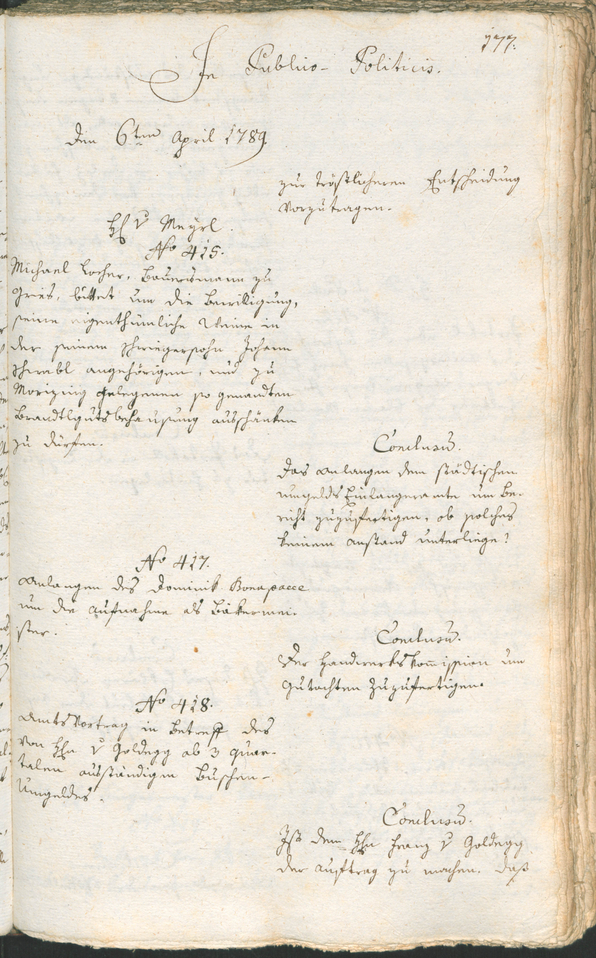 177.
In Publico-Politicis.
Den 6ten April 1789
zur tröstlicheren Entscheidung
vorzutragen.
H: v Mayrl.
No 415.
Michael Locher, Bauersmann zu
Gries, bittet um die Bewilligung,
seine eigenthümliche Weine in
der seinem Schwiegersohn Johann
Schrabl angehörigen, und zu
Morizing gelegenen so genannten
Brandlgutsbehausung ausschänken
zu dürfen.
Conclusum.
Das Anlangen dem städtischen
Umgelds Einlangeramte um Be-
richt zuzufertigen, ob solches
keinem Anstand unterliege?
No 417.
Anlangen des Dominik Bonapace
um die Aufnahme als Bäkermei-
ster.
Conclusum.
Der Handwerks Kommission um
Gutachten zuzufertigen.
No 418.
Amts Vortrag in Betreff des
von Hhn v Goldegg ab 3 Quar-
talen ausständigen Buschen-
Umgeldes.
Conclusum.
Ist dem Hhn Franz v Goldegg
der Auftrag zu machen, daß